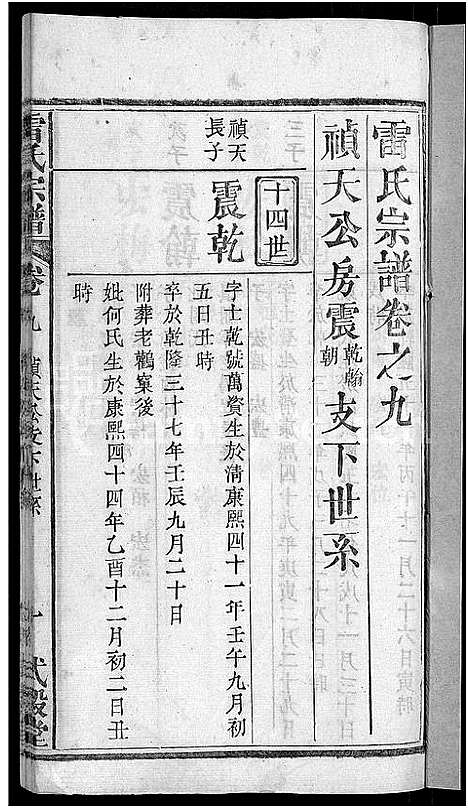 雷氏宗譜卷之九
禎天公房震乾翰朝支下世系
十四世
禎天
長子
震乾
字士乾號萬資生於清康熙四十一年壬午九月初
五日丑時
卒於乾隆三十七年壬辰九月二十日
附葬老鸛窠後
妣何氏生於康熙四十四年乙酉十二月初二日丑
時
雷氏宗譜
卷九
禎天公支下世系
一